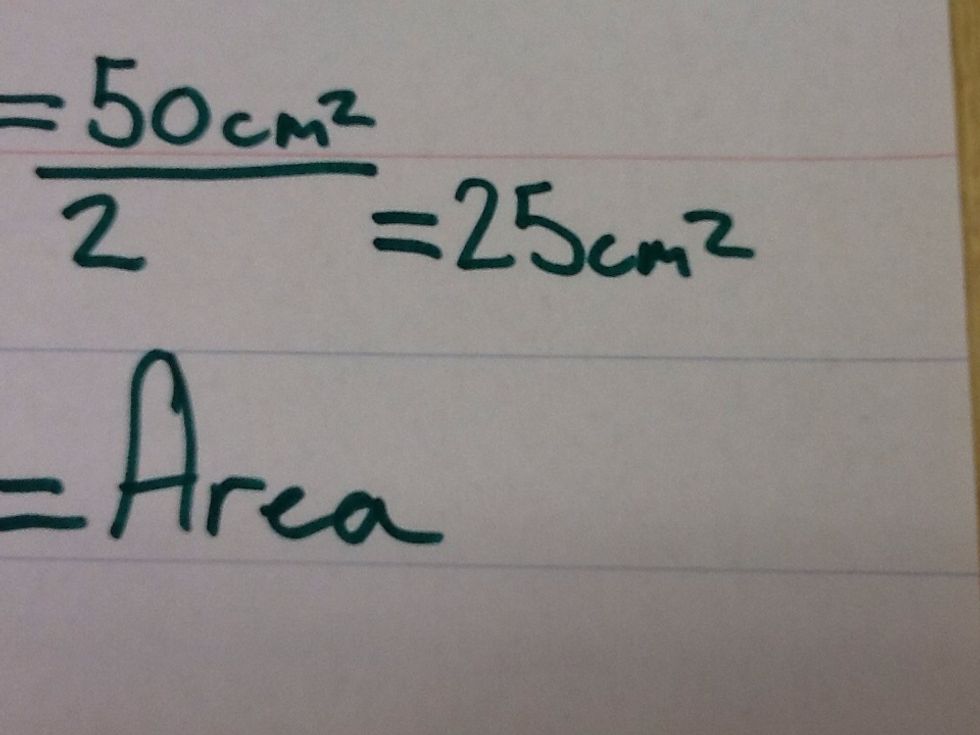 = 50cm²
2 = 25cm²
= Area